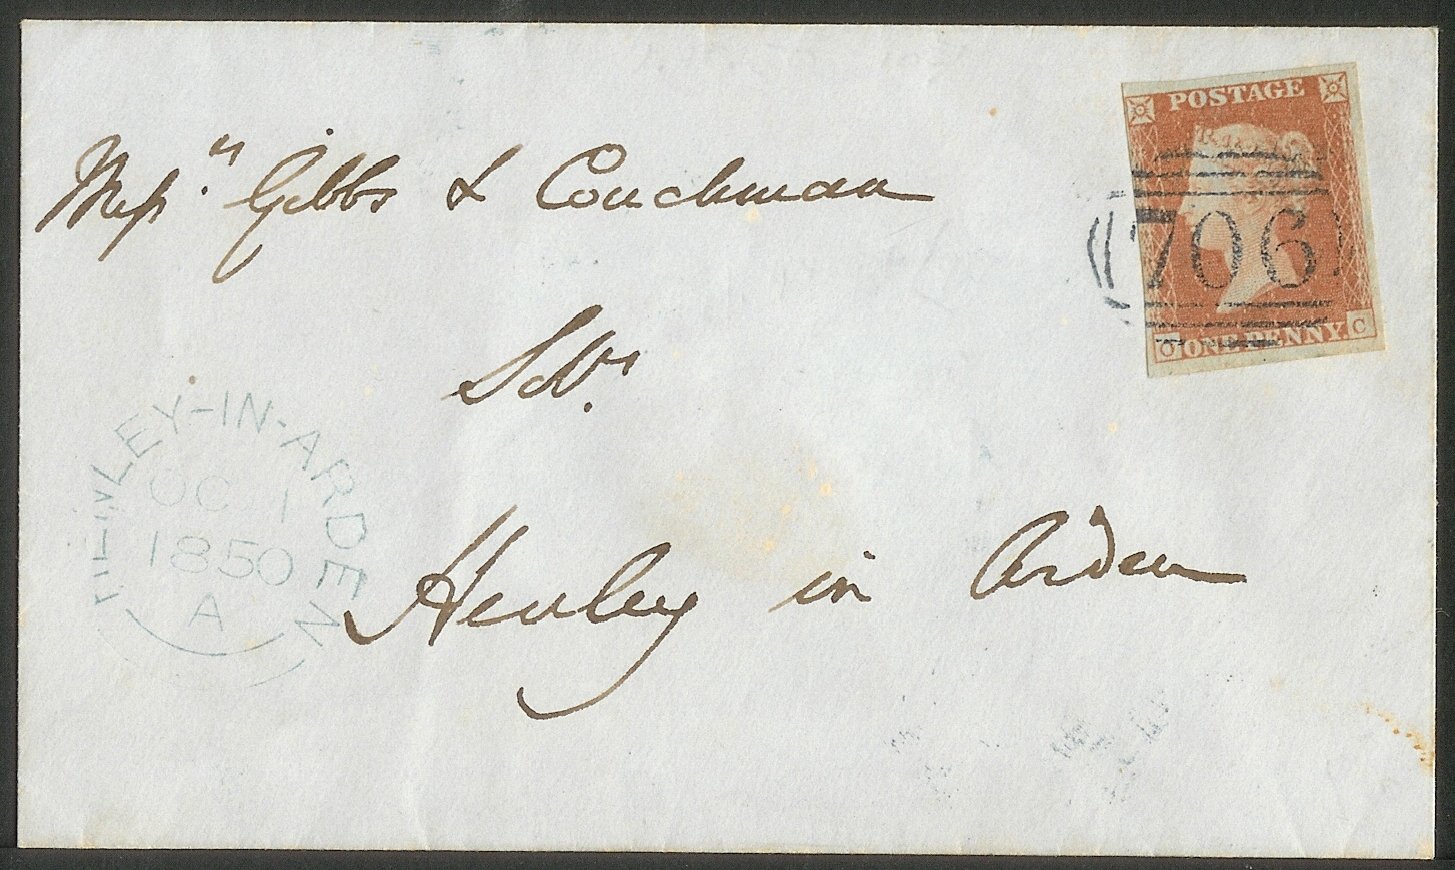 Messrs Gibbs & Couchman
Solrs.
Henley in Arden
POSTAGE
706
O ONE PENNY. C
HENLEY-IN-ARDEN
OC 1
1850
A